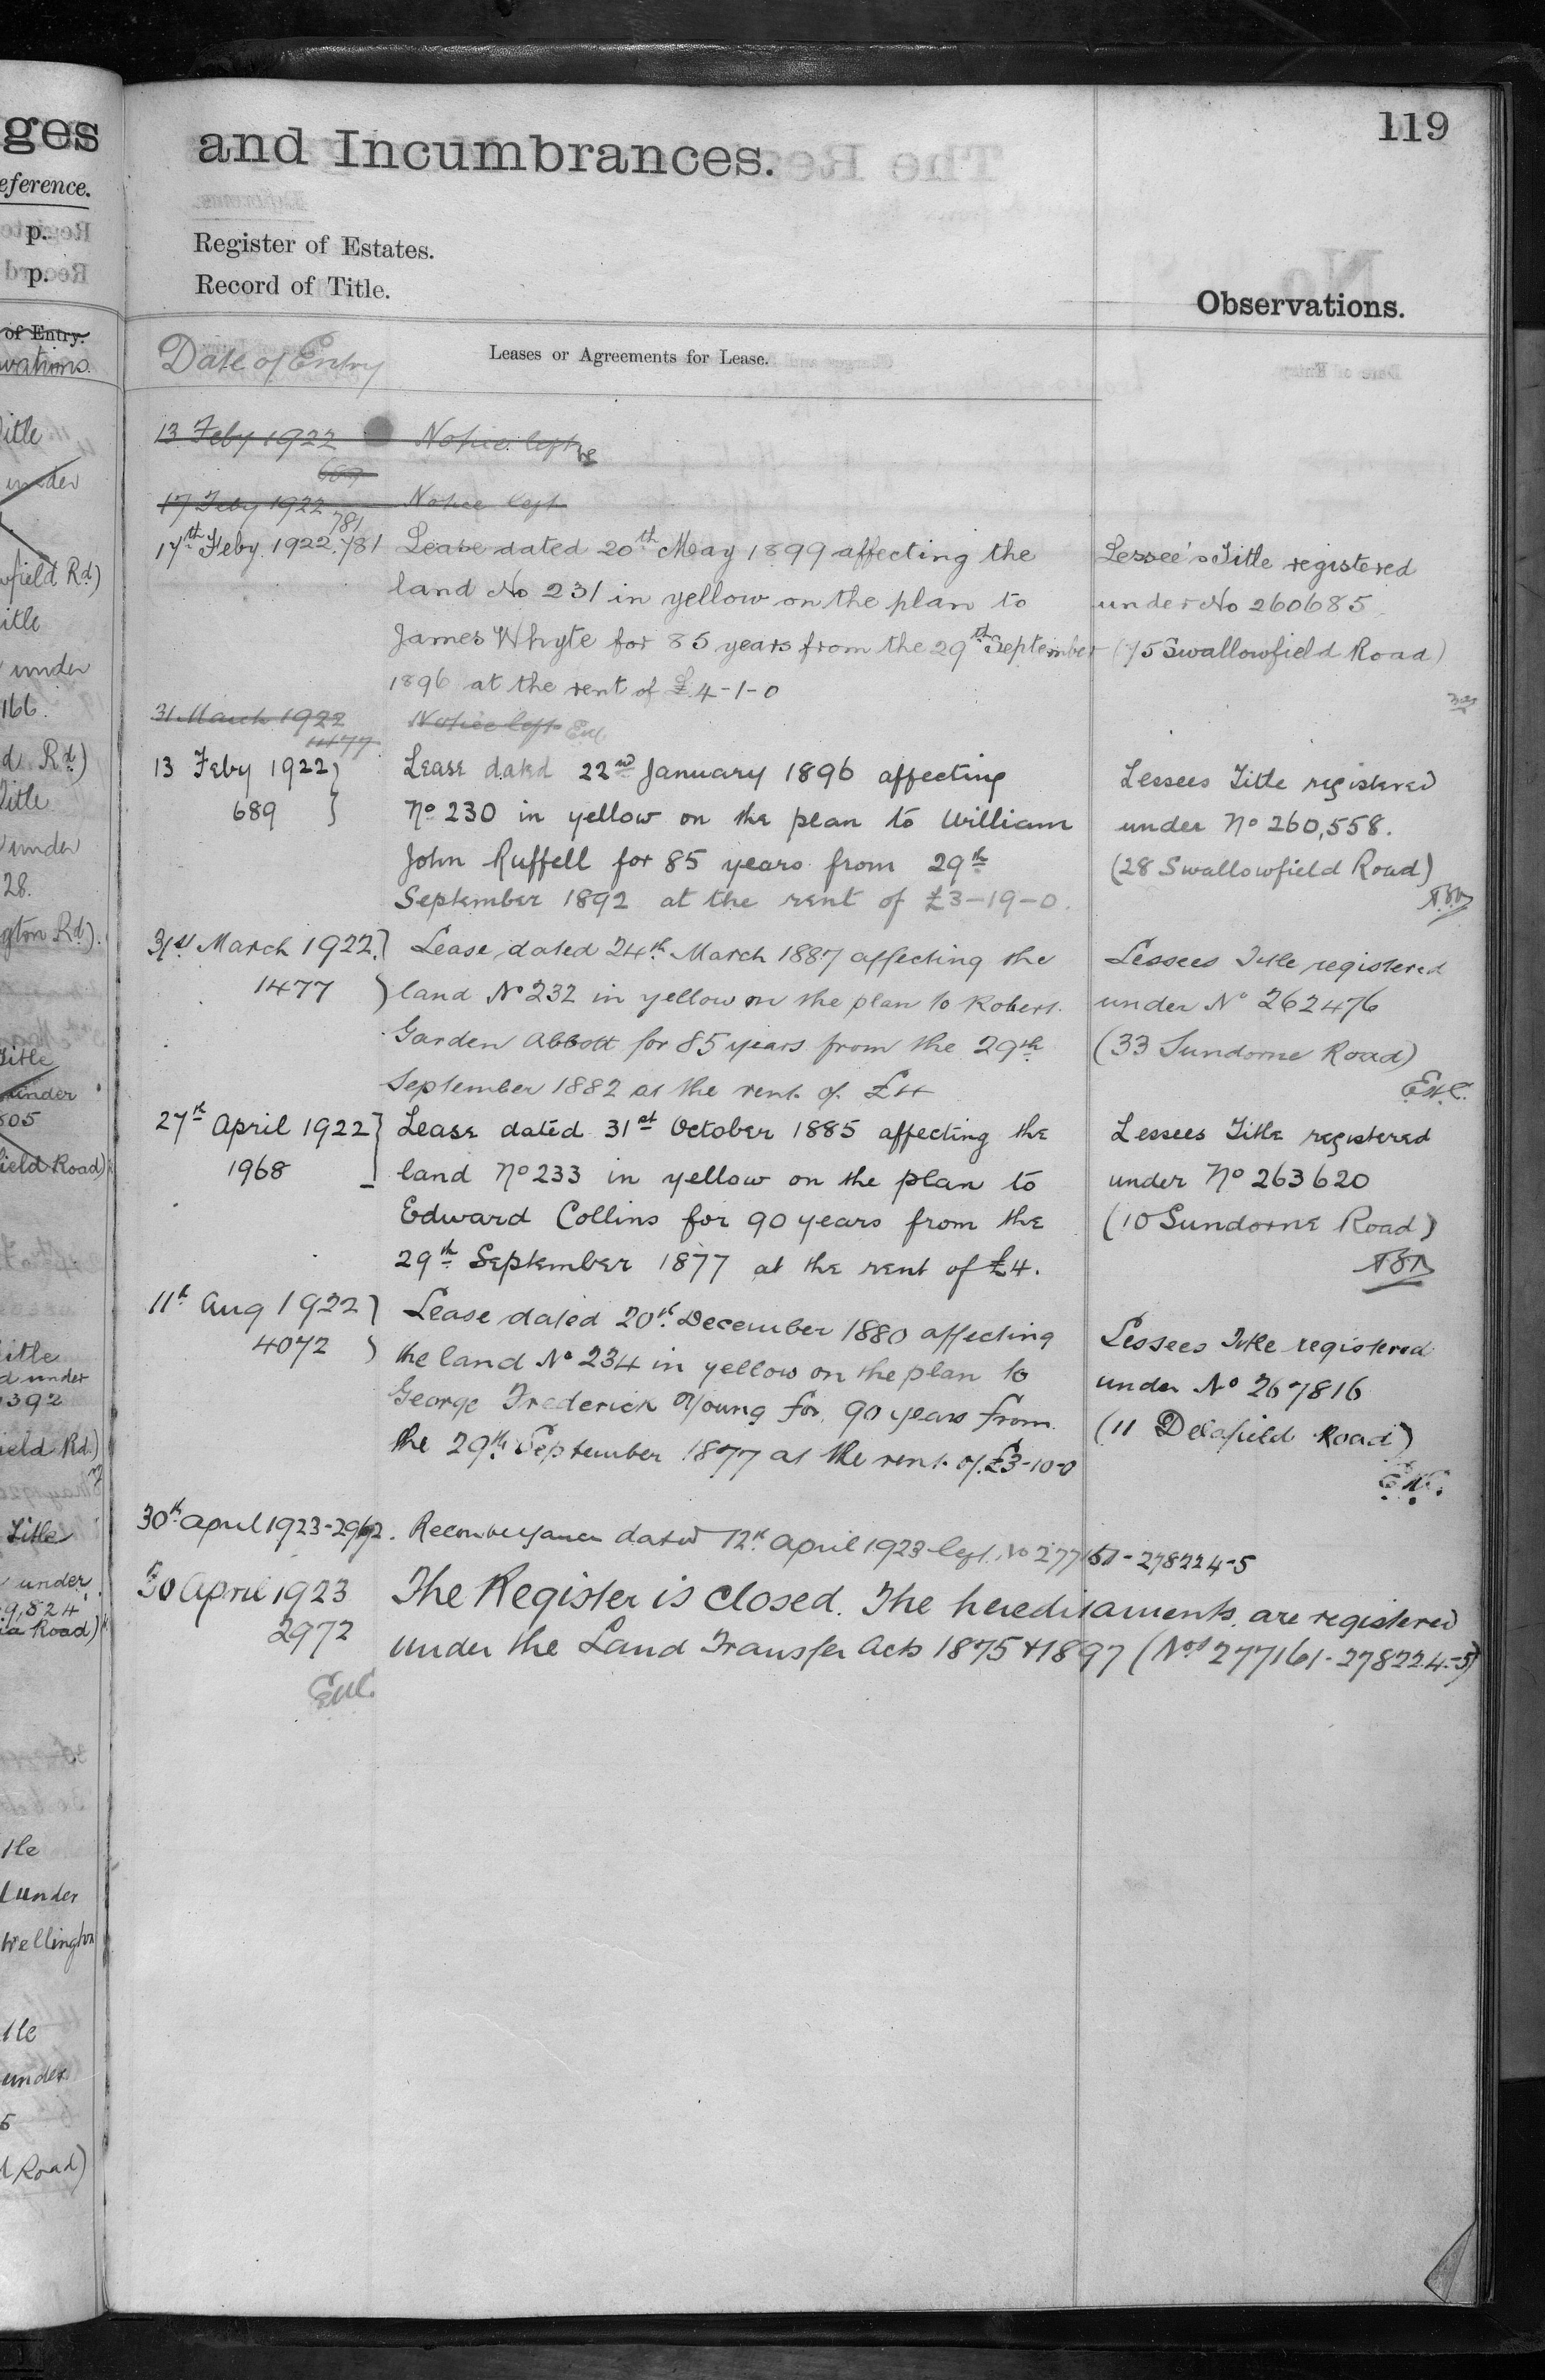 ges
eference.
p.
p.
of Entry.
itle
under
field Rd)
itle
under
166.
d Rd)
Title
under
28.
gton Rd).
Title
under
805
field Road)
itle
d under
392
ield Rd.)
Title
under
9,824
ia Road)
tle
under
Wellington
tle
under
5
d Road)
119
and Incumbrances.
Register of Estates.
Record of Title.
Observations.
Date of Entry
Leases or Agreements for Lease.
13 Feby 1922 Notice left
689
17 Feby 1922 Notice left
781
17th Feby. 1922. 781 Lease dated 20th May 1899 affecting the
land No 231 in yellow on the plan to
James Whyte for 85 years from the 29th September
1896 at the rent of £4-1-0
Lessee's Title registered
under No 260685
(75 Swallowfield Road)
31 March 1922 Notice left
1477
13 Feby 1922 } Lease dated 22nd January 1896 affecting
689 } No 230 in yellow on the plan to William
John Ruffell for 85 years from 29th
September 1892 at the rent of £3-19-0.
Lessees Title registered
under No 260,558.
(28 Swallowfield Road)
31st March 1922.) Lease dated 24th March 1887 affecting the
1477 ) land No 232 in yellow on the plan to Robert
Garden Abbott for 85 years from the 29th
September 1882 at the rent of £4
Lessees Title registered
under No 262476
(33 Sundorne Road)
27th April 1922 } Lease dated 31st October 1885 affecting the
1968 land No 233 in yellow on the plan to
Edward Collins for 90 years from the
29th September 1877 at the rent of £4.
Lessees Title registered
under No 263620
(10 Sundorne Road)
11th Aug 1922 ) Lease dated 20th December 1880 affecting
4072 ) the land No 234 in yellow on the plan to
George Frederick Young for 90 years from
the 29th September 1877 at the rent of £3-10-0
Lessees Title registered
under No 267816
(11 Delafield Road)
30th April 1923-2972. Reconveyance dated 12th April 1923 left. No 277161-278224-5
30 April 1923 The Register is closed. The hereditaments are registered
2972 under the Land Transfer Acts 1875 & 1897 (Nos 277161-278224-5)